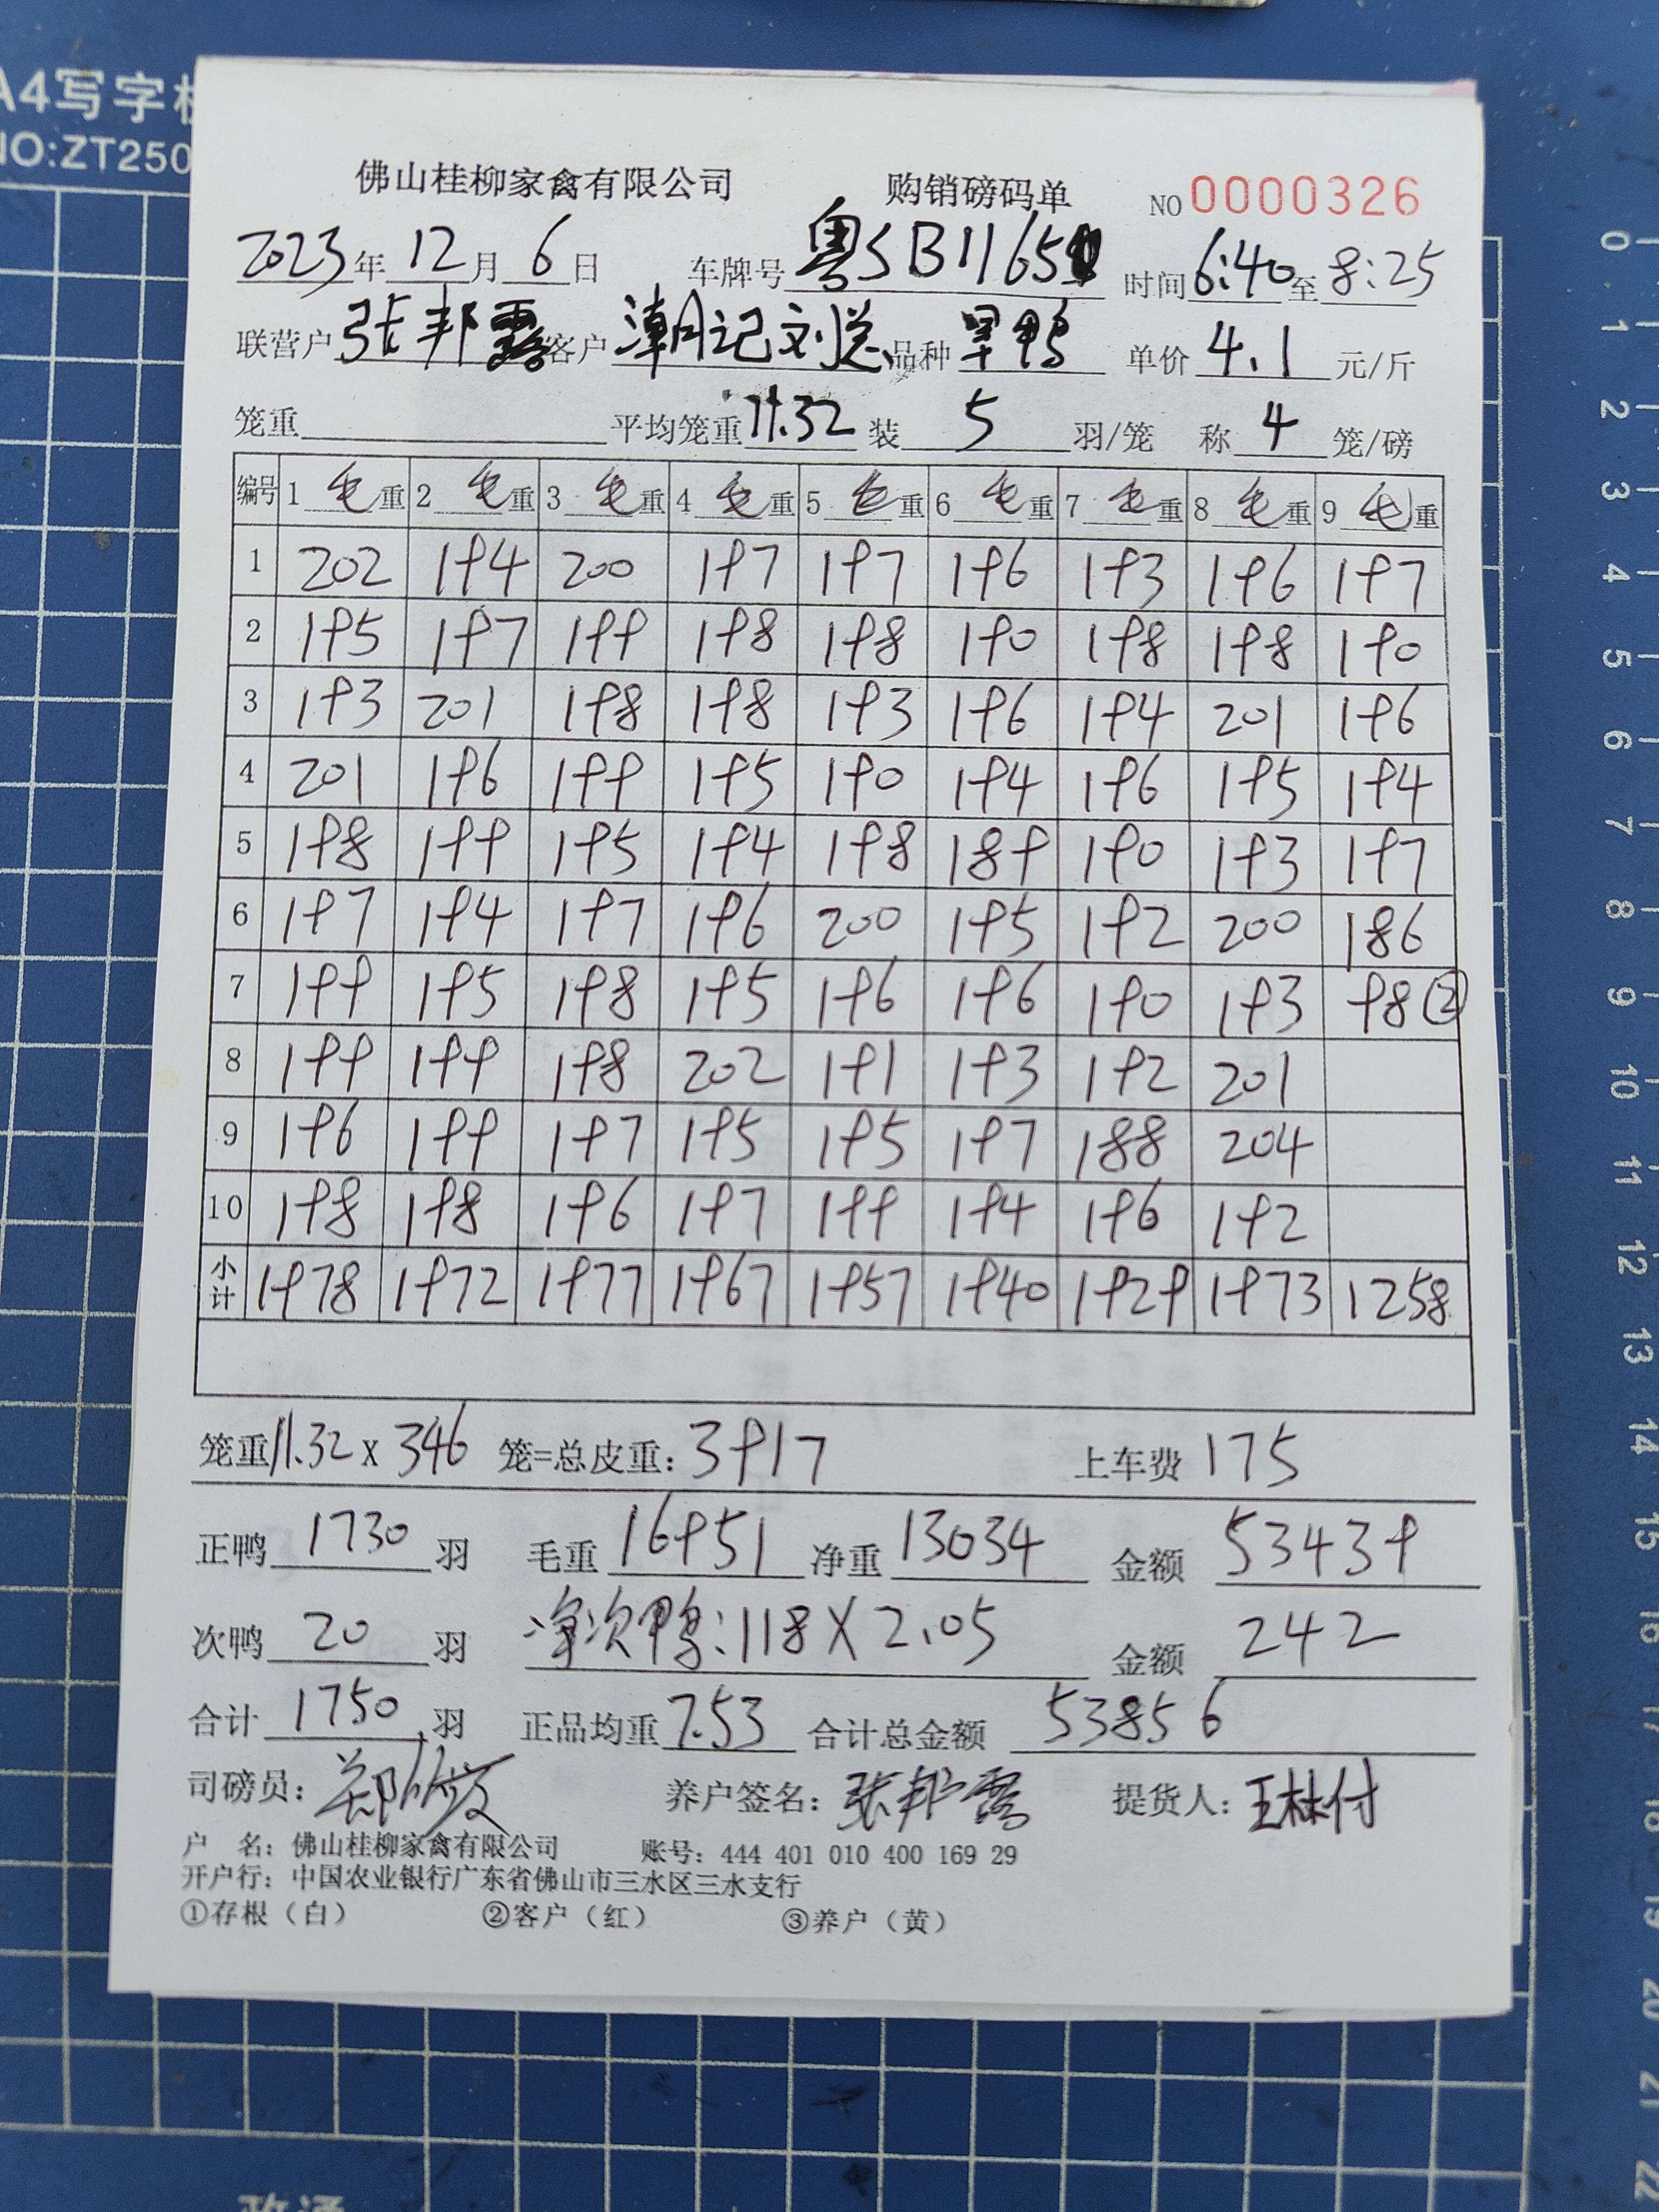 A4写字
NO:ZT250
佛山桂柳家禽有限公司 购销磅码单 NO 0000326
2023年 12月 6日 车牌号 粤SB1165 时间 6:40 至 8:25
联营户 张邦露 客户 潮记刘总 品种 旱鸭 单价 4.1 元/斤
笼重 平均笼重 11.32 装 5 羽/笼 称 4 笼/磅
编号 1 毛重 2 毛重 3 毛重 4 毛重 5 毛重 6 毛重 7 毛重 8 毛重 9 毛重
1 202 194 200 197 197 196 193 196 197
2 195 197 199 198 198 190 198 198 190
3 193 201 198 198 193 196 194 201 196
4 201 196 199 195 190 194 196 195 194
5 198 199 195 194 198 189 190 193 197
6 197 194 197 196 200 195 192 200 186
7 199 195 198 195 196 196 190 193 98②
8 199 199 198 202 191 193 192 201
9 196 199 197 195 195 197 188 204
10 198 198 196 197 199 194 196 192
小计 1978 1972 1977 1967 1957 1940 1929 1973 1258
笼重 11.32 x 346 笼=总皮重: 3917 上车费 175
正鸭 1730 羽 毛重 16951 净重 13034 金额 53439
次鸭 20 羽 净次鸭:118X2.05 金额 242
合计 1750 羽 正品均重 7.53 合计总金额 53856
司磅员: 郑 养户签名: 张邦露 提货人: 王林付
户 名: 佛山桂柳家禽有限公司 账号: 444 401 010 400 169 29
开户行: 中国农业银行广东省佛山市三水区三水支行
①存根（白） ②客户（红） ③养户（黄）
0
1
2
3
4
5
6
7
8
9
10
11
12
13
14
15
16
17
18
19
20
21
22